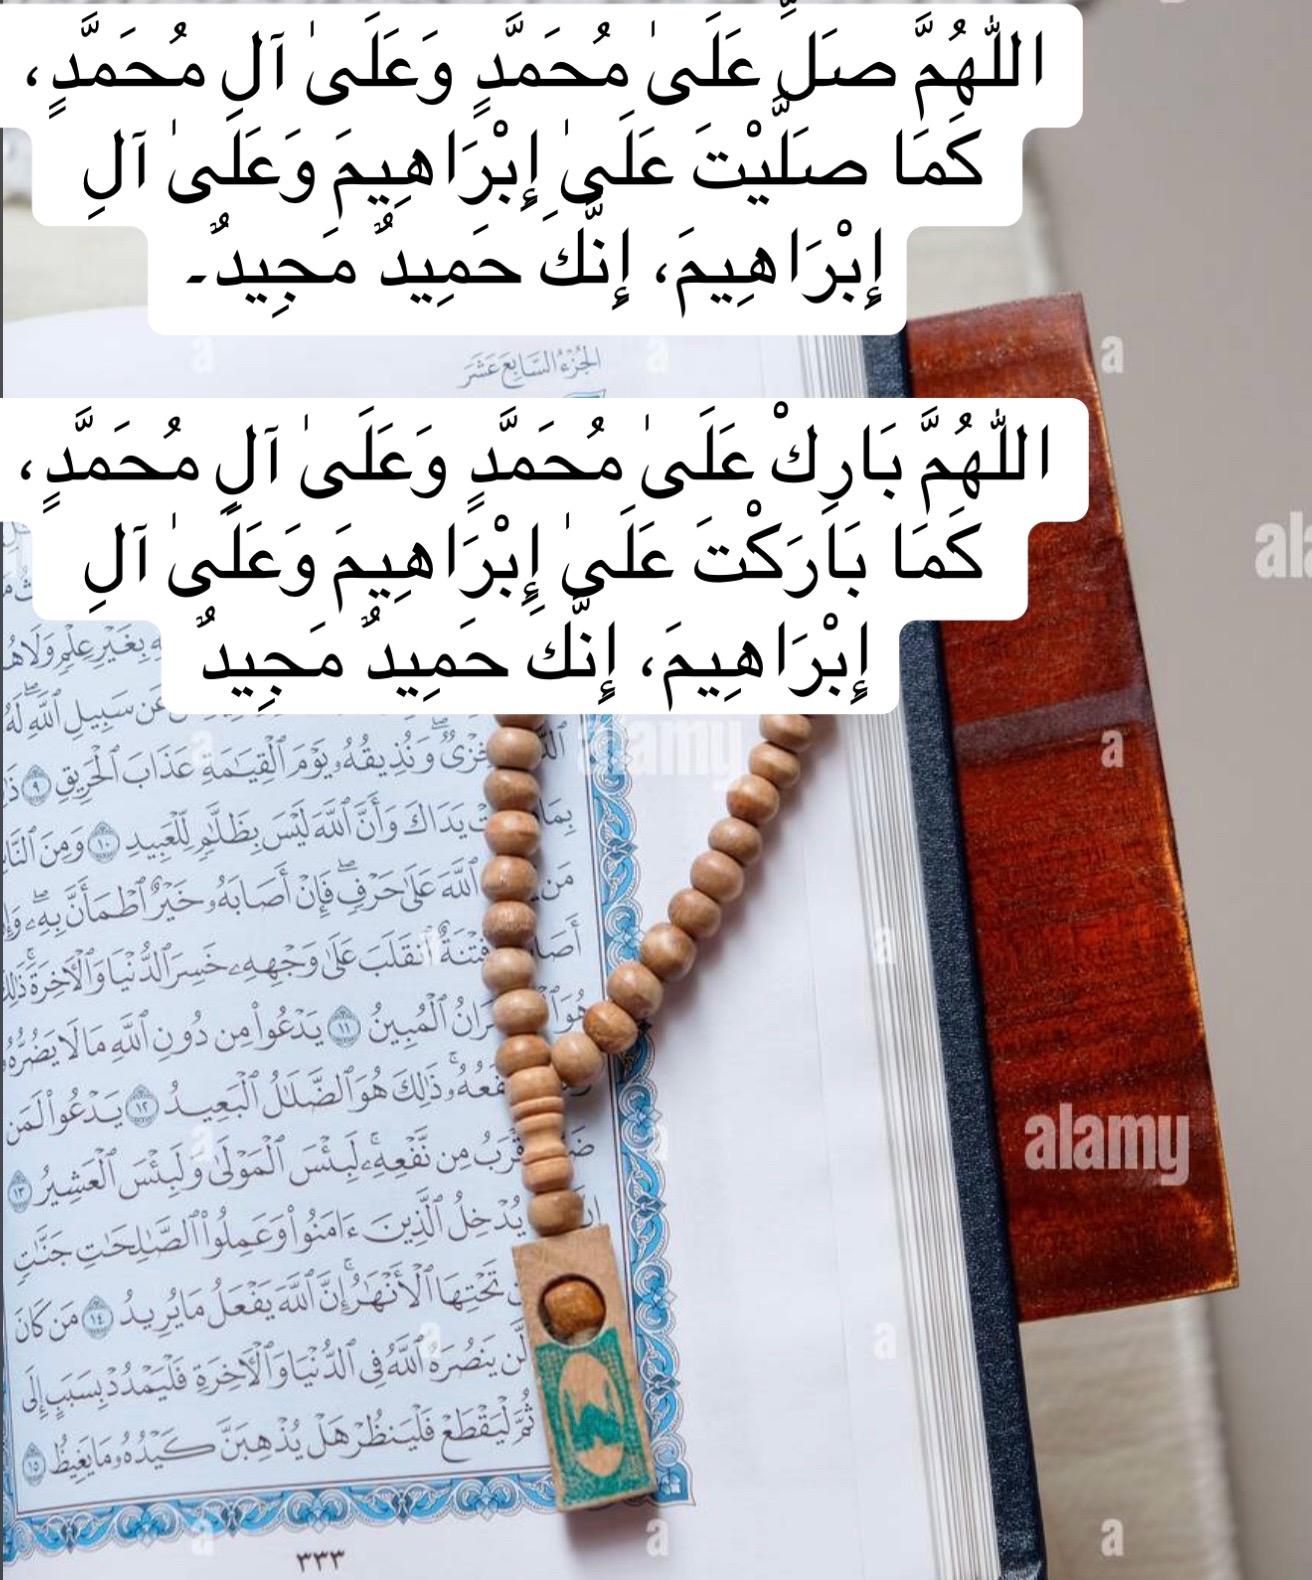 اللَّهُمَّ صَلِّ عَلَىٰ مُحَمَّدٍ وَعَلَىٰ آلِ مُحَمَّدٍ،
كَمَا صَلَّيْتَ عَلَىٰ إِبْرَاهِيمَ وَعَلَىٰ آلِ
إِبْرَاهِيمَ، إِنَّكَ حَمِيدٌ مَجِيدٌ۔
الجُزْءُ السَّابِعَ عَشَرَ
اللَّهُمَّ بَارِكْ عَلَىٰ مُحَمَّدٍ وَعَلَىٰ آلِ مُحَمَّدٍ،
كَمَا بَارَكْتَ عَلَىٰ إِبْرَاهِيمَ وَعَلَىٰ آلِ
إِبْرَاهِيمَ، إِنَّكَ حَمِيدٌ مَجِيدٌ
بِغَيْرِ عِلْمٍ وَلَا
عَن سَبِيلِ ٱللَّهِ لَهُ
خِزْىٌ وَنُذِيقُهُۥ يَوْمَ ٱلْقِيَٰمَةِ عَذَابَ ٱلْحَرِيقِ ٩
يَدَاكَ وَأَنَّ ٱللَّهَ لَيْسَ بِظَلَّٰمٍ لِّلْعَبِيدِ ١٠ وَمِنَ
مَن ٱللَّهَ عَلَىٰ حَرْفٍ فَإِنْ أَصَابَهُۥ خَيْرٌ ٱطْمَأَنَّ بِهِۦ
فِتْنَةٌ ٱنقَلَبَ عَلَىٰ وَجْهِهِۦ خَسِرَ ٱلدُّنْيَا وَٱلْءَاخِرَةَ
هُوَ ٱلْمُبِينُ ١١ يَدْعُوا۟ مِن دُونِ ٱللَّهِ مَا لَا يَضُرُّهُۥ
ذَٰلِكَ هُوَ ٱلضَّلَٰلُ ٱلْبَعِيدُ ١٢ يَدْعُوا۟ لَمَن
مِن نَّفْعِهِۦ لَبِئْسَ ٱلْمَوْلَىٰ وَلَبِئْسَ ٱلْعَشِيرُ ١٣
يُدْخِلُ ٱلَّذِينَ ءَامَنُوا۟ وَعَمِلُوا۟ ٱلصَّٰلِحَٰتِ جَنَّٰتٍ
تَحْتِهَا ٱلْأَنْهَٰرُ إِنَّ ٱللَّهَ يَفْعَلُ مَا يُرِيدُ ١٤ مَن كَانَ
لَّن يَنصُرَهُ ٱللَّهُ فِى ٱلدُّنْيَا وَٱلْءَاخِرَةِ فَلْيَمْدُدْ بِسَبَبٍ إِلَى
ثُمَّ لْيَقْطَعْ فَلْيَنظُرْ هَلْ يُذْهِبَنَّ كَيْدُهُۥ مَا يَغِيظُ ١٥
٣٣٣
alamy
alamy